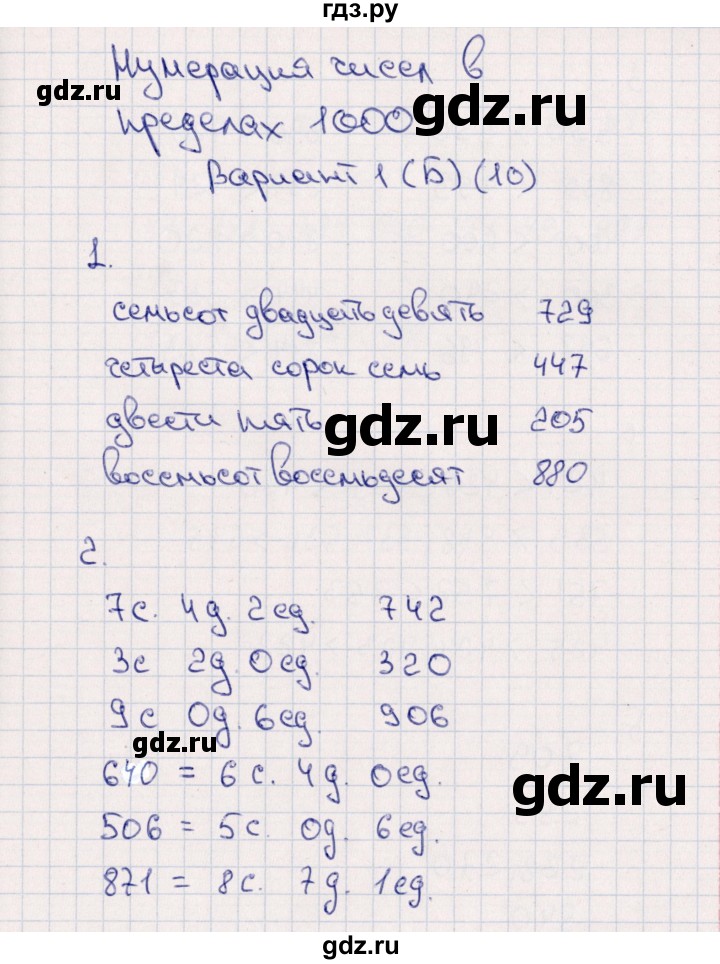 гдз.ру
Нумерация чисел в
gdz.ru
пределах 1000
gdz.ru
Вариант 1 (Б) (10)
1.
семьсот двадцать девять 729
четыреста сорок семь 447
двести пять 205
gdz.ru
восемьсот восемьдесят 880
2.
7с. 4д. 2ед. 742
3с 2д. 0ед. 320
9с 0д. 6ед. 906
gdz.ru
640 = 6с. 4д. 0ед.
gdz.ru
506 = 5с. 0д. 6ед.
871 = 8с. 7д. 1ед.
gdz.ru